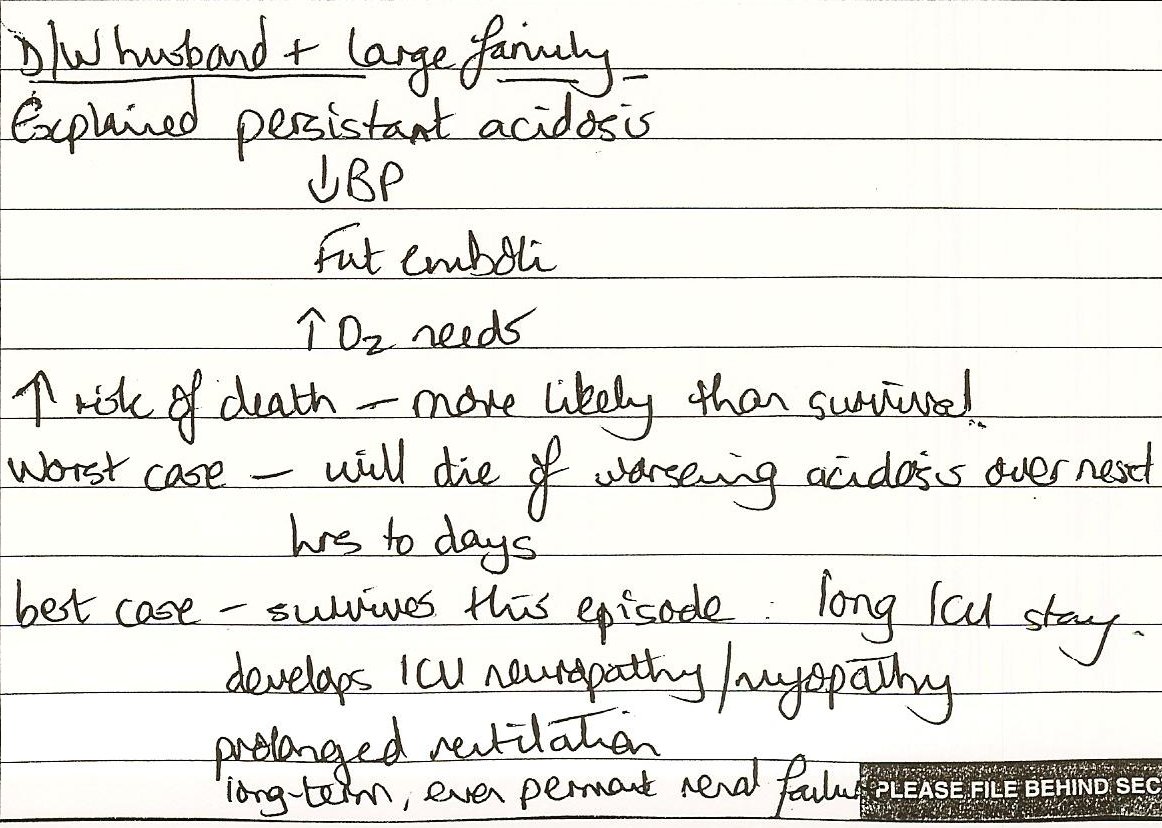 D/W husband + large family
Explained persistant acidosis
↓BP
Fat emboli
↑ O2 needs
↑ risk of death – more likely than survival
Worst case – will die of worsening acidosis over next
hrs to days
best case – survives this episode. long ICU stay.
develops ICU neuropathy/myopathy
prolonged ventilation
long-term, even permant renal failure
PLEASE FILE BEHIND SEC